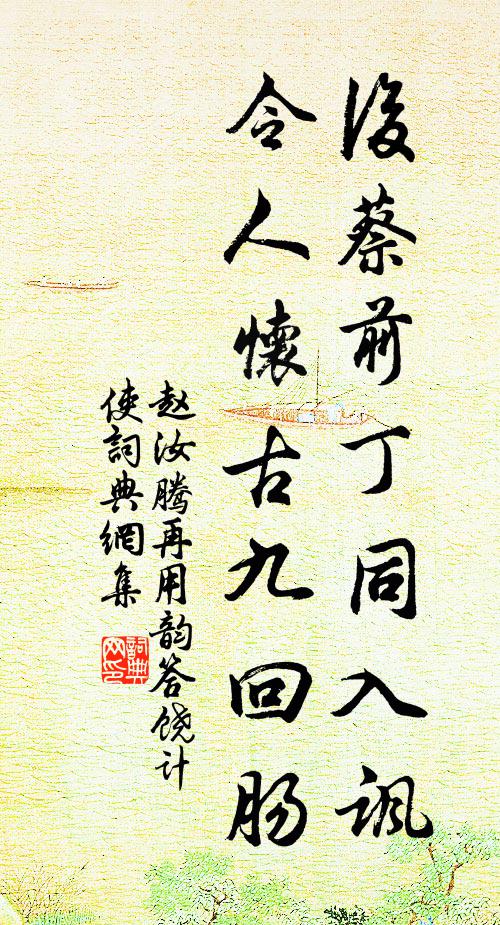 後蔡前丁同入諷
令人懷古九回肠
赵汝腾再用韵答饶计
使詞典網集
詞典
网印